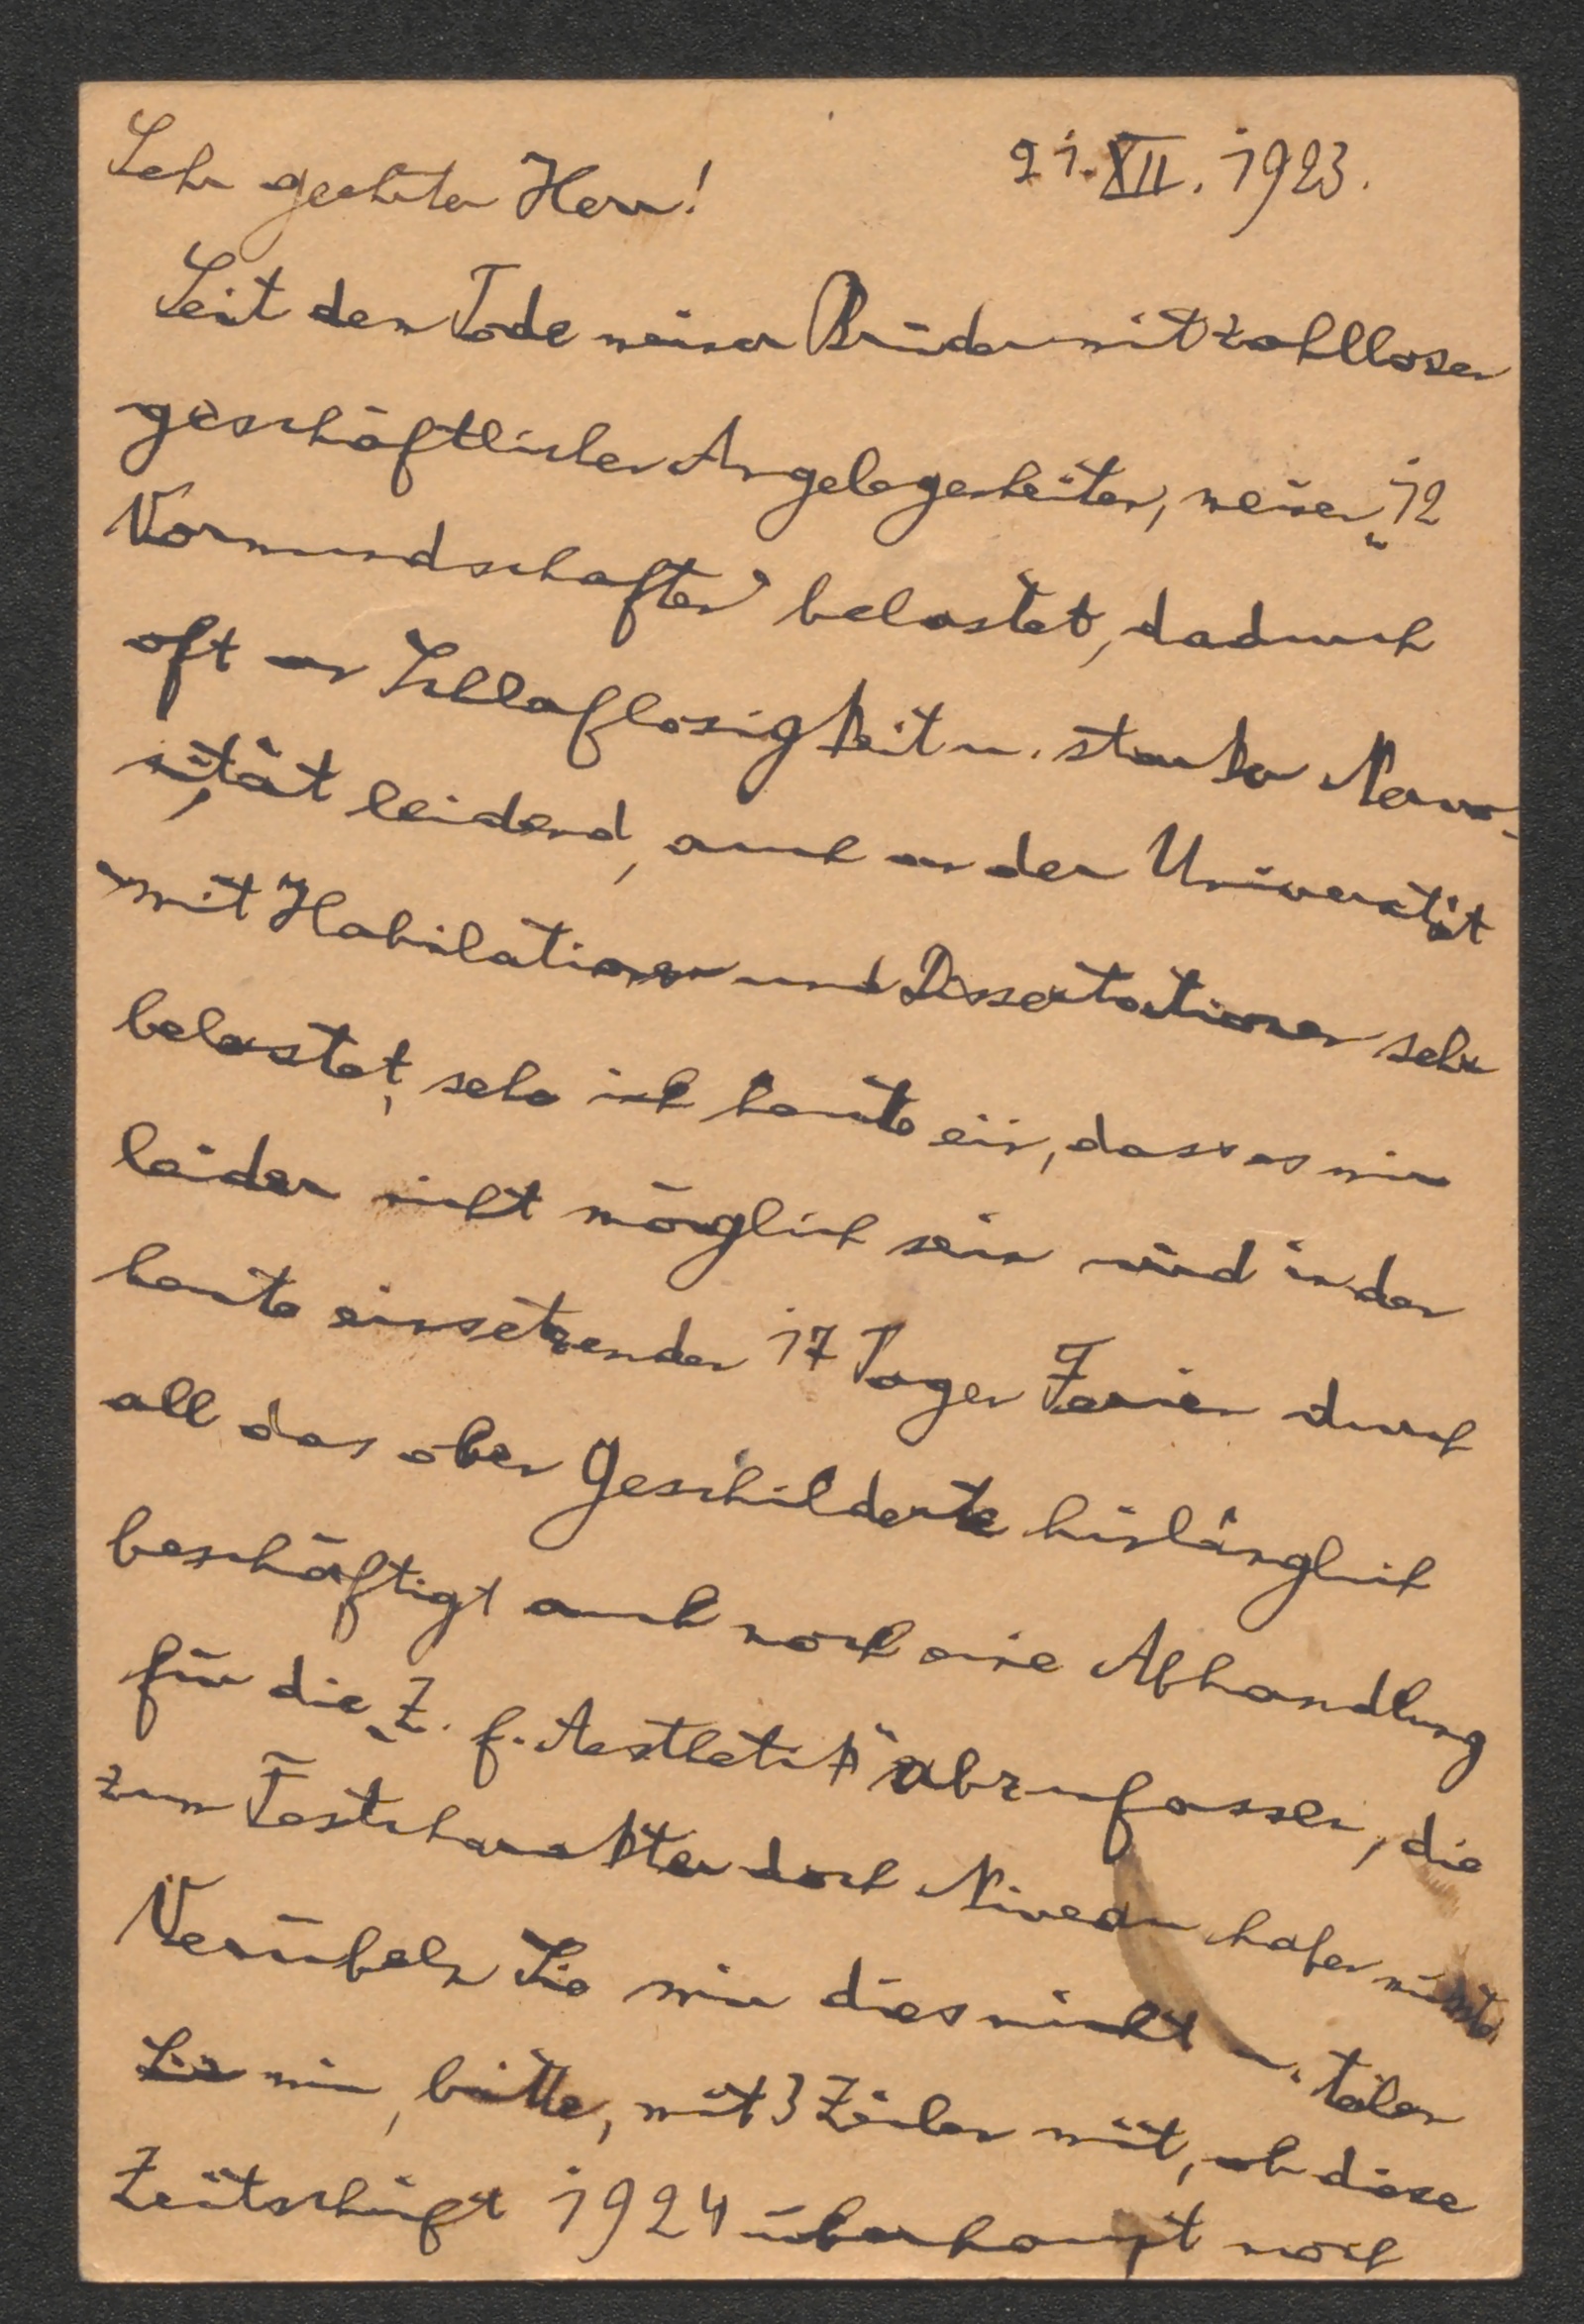 Sehr geehrter Herr!
21. XII. 1923.
Seit dem Tode meiner Brüder mit zahllosen
geschäftlichen Angelegenheiten, meinen „12
Vormundschaften" belastet, dadurch
oft an Schlaflosigkeit u. starker Nervo-
sität leidend, auch an der Universität
mit Habilationen und Dissertationen sehr
belastet, sehe ich heute ein, dass es mir
leider nicht möglich sein wird in den
heute einsetzenden 17 Tagen Ferien durch
all das oben Geschilderte hinlänglich
beschäftigt auch noch eine Abhandlung
für die „Z. f. Aesthetik" abzufassen, die
zum Festcharakter doch Niveau haben müsste.
Verübeln Sie mir dies nicht u. teilen
Sie mir, bitte, mit 3 Zeilen mit, ob diese
Zeitschrift 1924 überhaupt noch